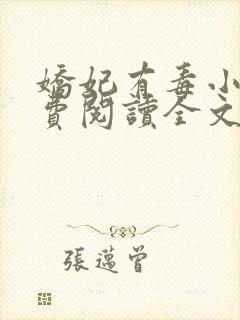 嬌妃有毒小
費閱讀全文
張邁曾